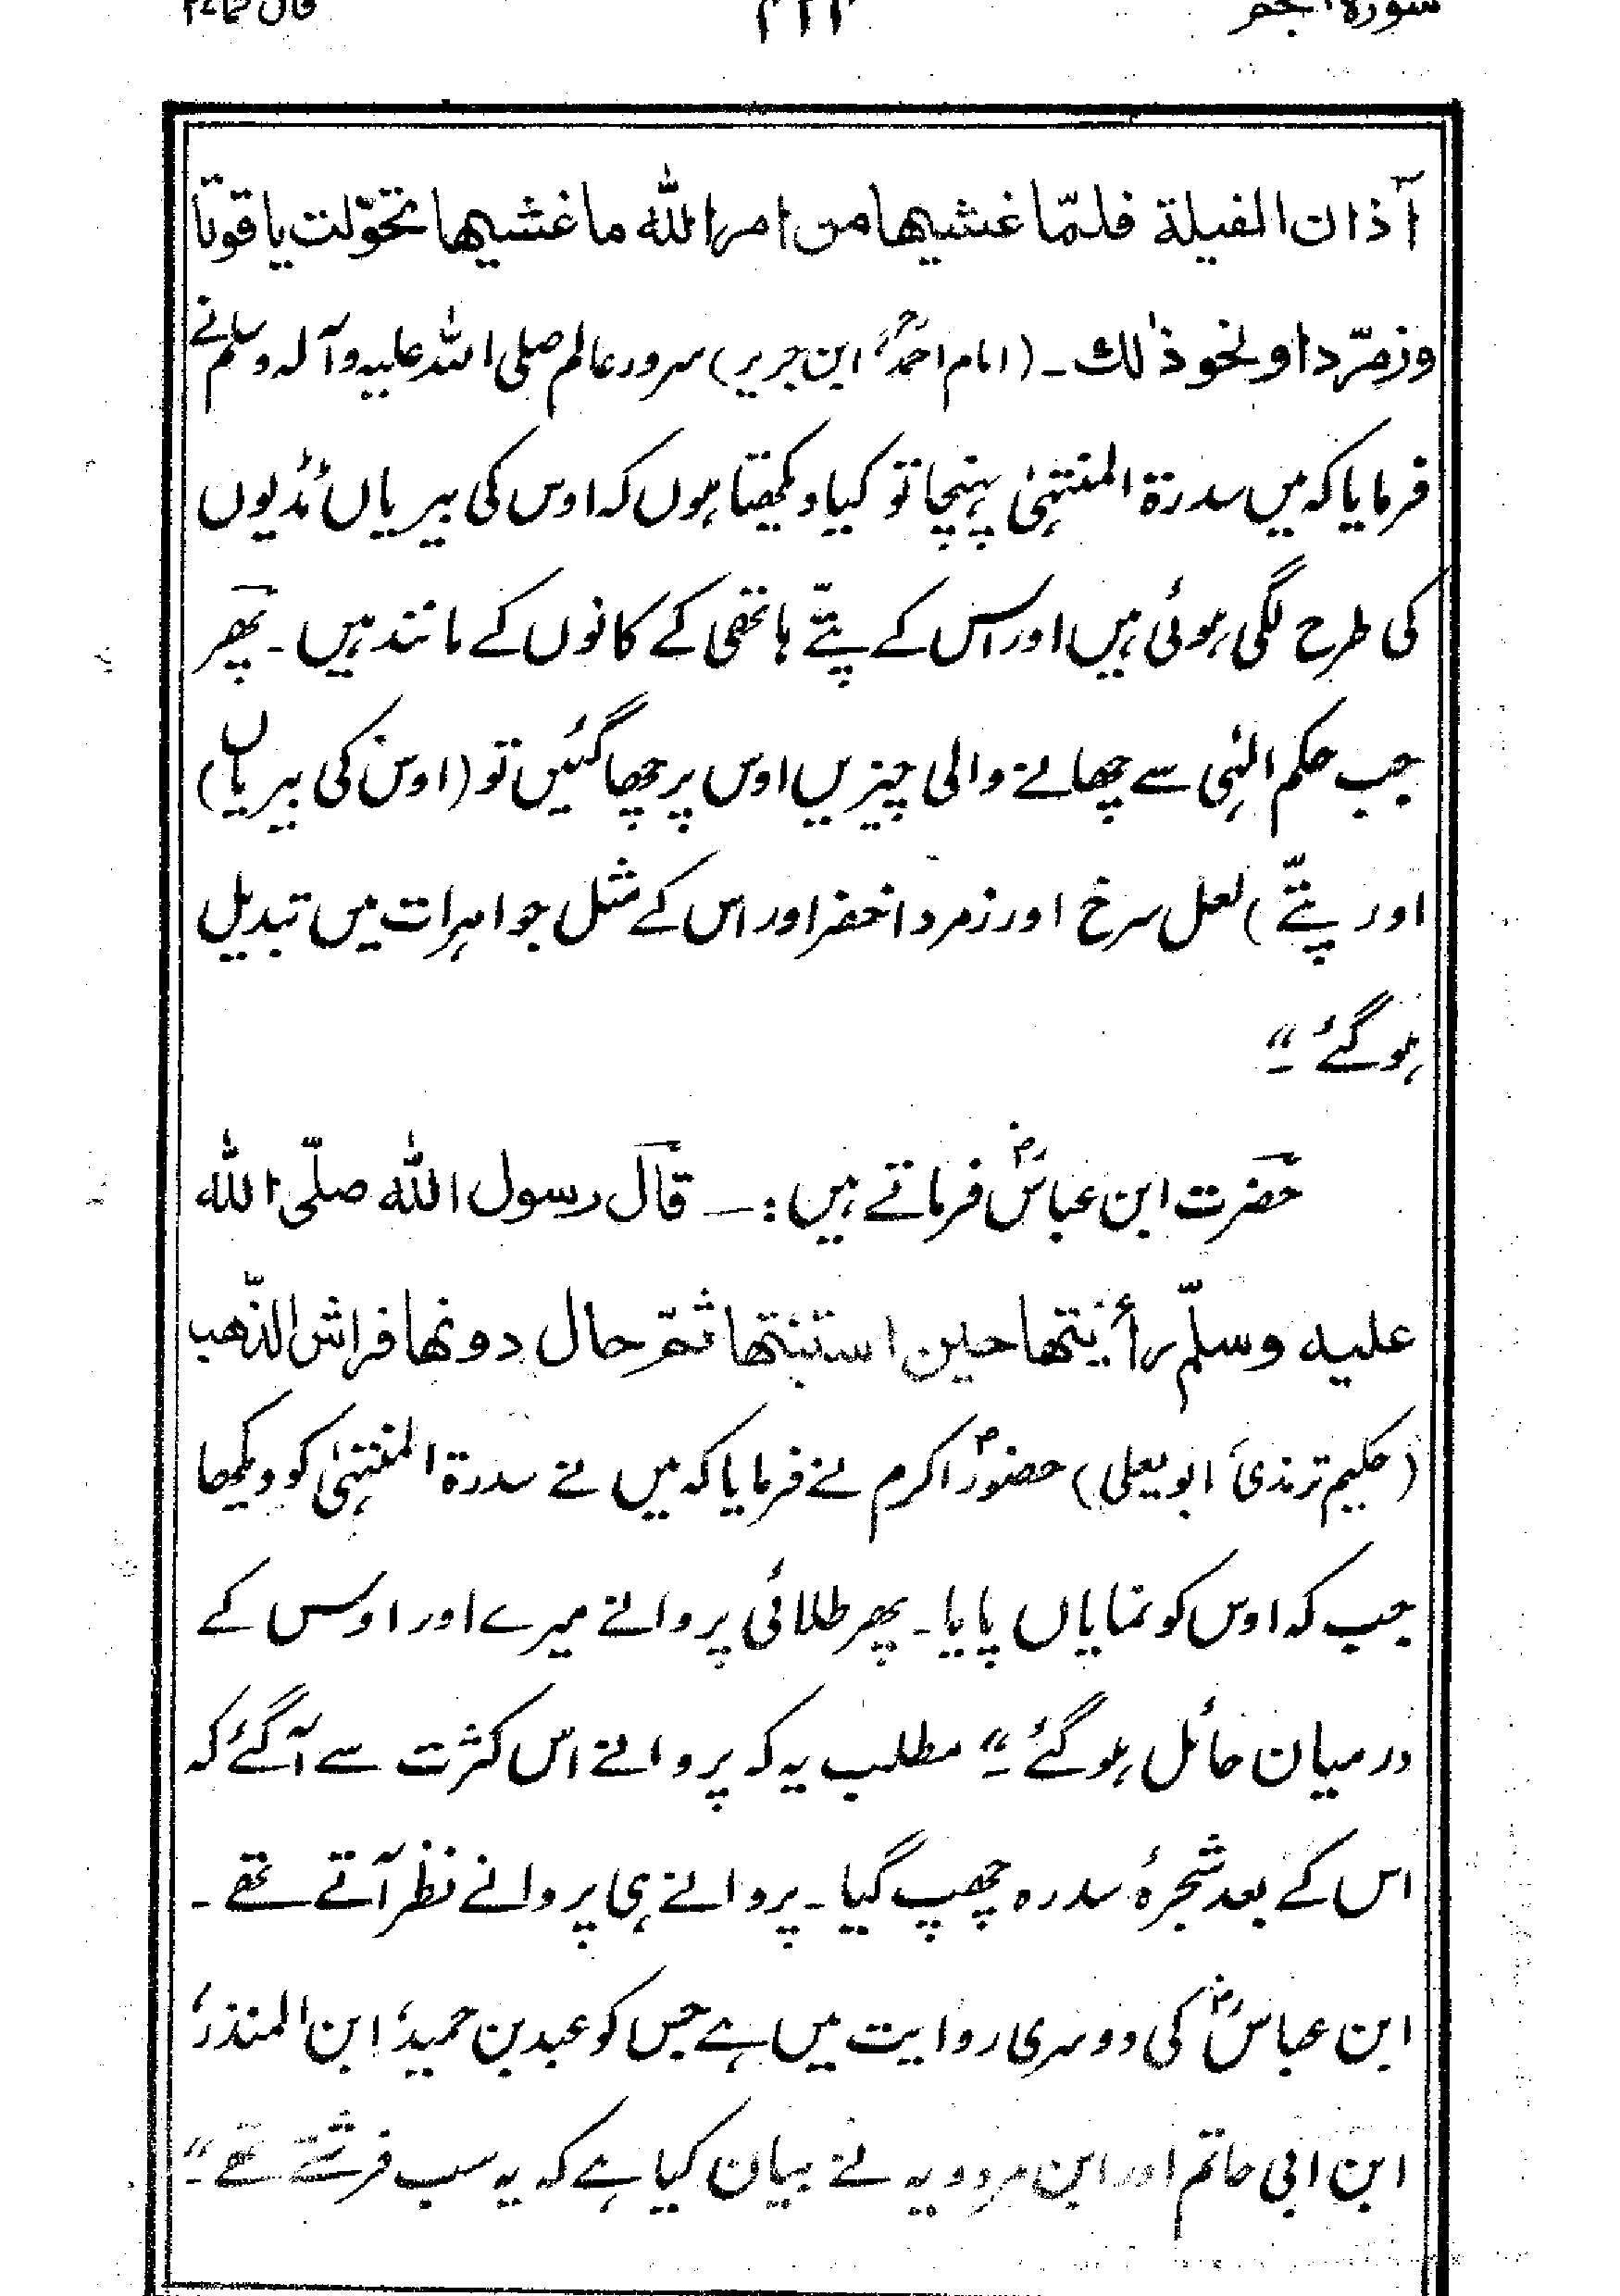 آذان الفیلة فلمّا غشیها من امر الله ما غشیها تحوّلت یاقوتا
وزمرّدا ونحو ذٰلك۔ (امام احمدؒ، ابن جریر) سرورعالم صلی اللہ علیہ وآلہ وسلم نے
فرمایا کہ میں سدرۃ المنتہیٰ پہنچا تو کیا دیکھتا ہوں کہ اوس کی بیریاں ٹڈیوں
کی طرح لگی ہوئی ہیں اور اس کے پتّے ہاتھی کے کانوں کے مانند ہیں۔ پھر
جب حکم الٰہی سے چھانے والی چیزیں اوس پر چھا گئیں تو (اوس کی بیریاں)
اور پتّے) لعل سرخ اور زمرد اخضر اور اس کے مثل جواہرات میں تبدیل
ہوگئے۔"
حضرت ابن عباسؓ فرماتے ہیں:۔ قال رسول الله صلّی الله
علیه وسلّم رأیتها حین استبنتها ثم حال دونها فراش الذّهب
(حکیم ترمذی، ابو یعلی) حضورؐ اکرم نے فرمایا کہ میں نے سدرۃ المنتہیٰ کو دیکھا
جب کہ اوس کو نمایاں پایا۔ پھر طلائی پروانے میرے اور اوس کے
درمیان حائل ہوگئے۔" مطلب یہ کہ پروانے اس کثرت سے آگئے کہ
اس کے بعد شجرۂ سدرہ چھپ گیا۔ پروانے ہی پروانے نظر آتے تھے۔
ابن عباسؓ کی دوسری روایت میں ہے جس کو عبد بن حمید، ابن المنذر،
ابن ابی حاتم اور ابن مردویہ نے بیان کیا ہے کہ یہ سب فرشتے تھے۔"